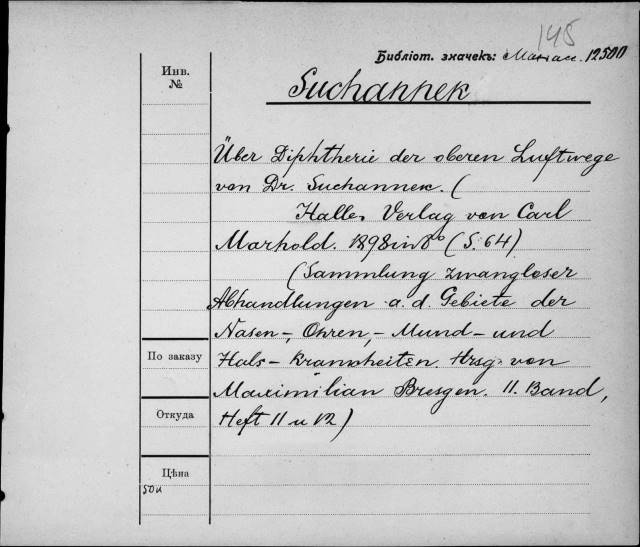 145
Библіот. значекъ: 12500
Инв.
№
Suchannek
Über Diphtherie der oberen Luftwege
von Dr. Suchannek. (
Halle, Verlag von Carl
Marhold. 1898 in 8° (S. 64)
(Sammlung zwangloser
Abhandlungen a. d. Gebiete der
Nasen-, Ohren,- Mund- und
По заказу
Hals- Krankheiten. Hrsg. von
Maximilian Bresgen. II. Band,
Откуда
Heft 11 u 12)
Цѣна